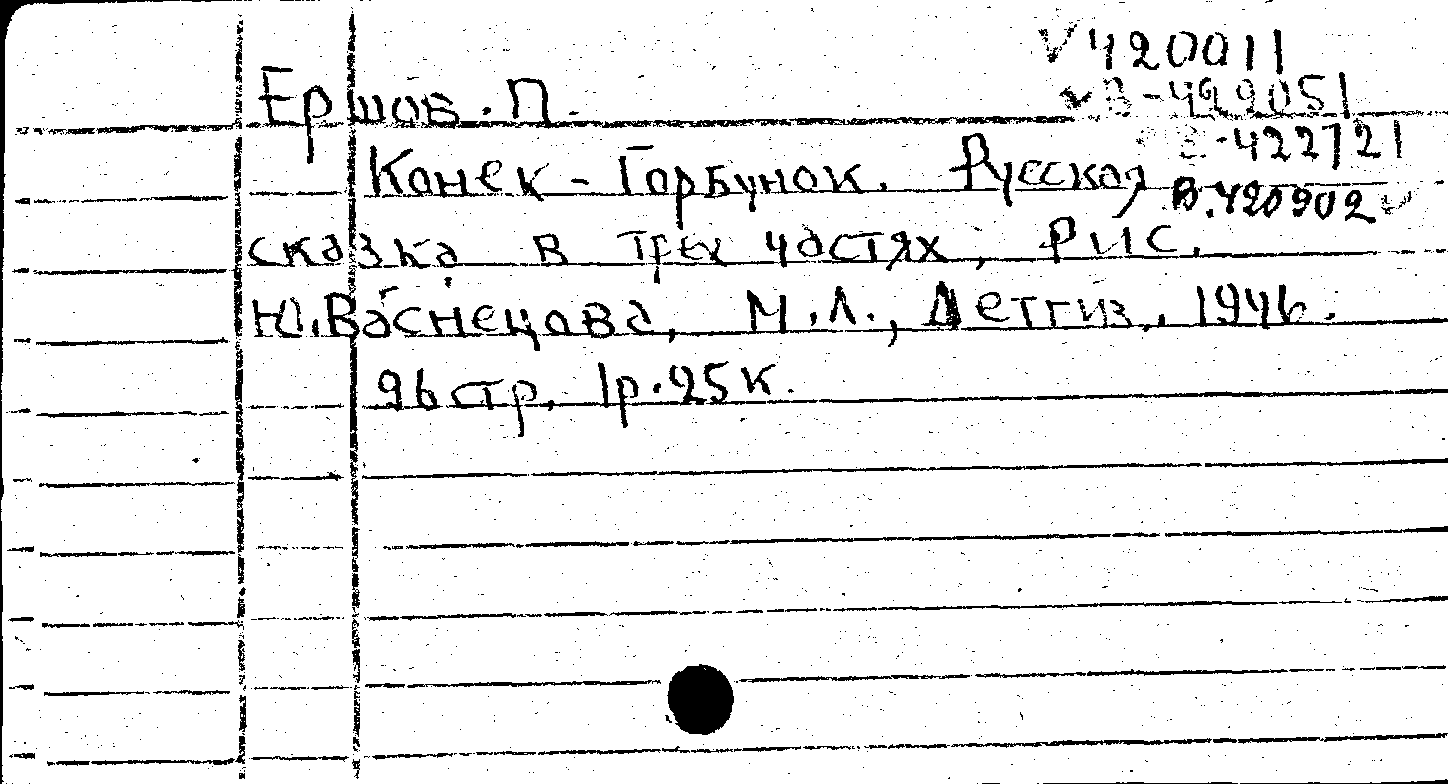 V 420011
Ершов. П.
V В-422051
-422721
Конек - Горбунок. Русская
В.420902 V
сказка в трех частях, Рис.
Ю.Васнецова, М.Л., Детгиз., 1946.
96 стр. 1р.25к.